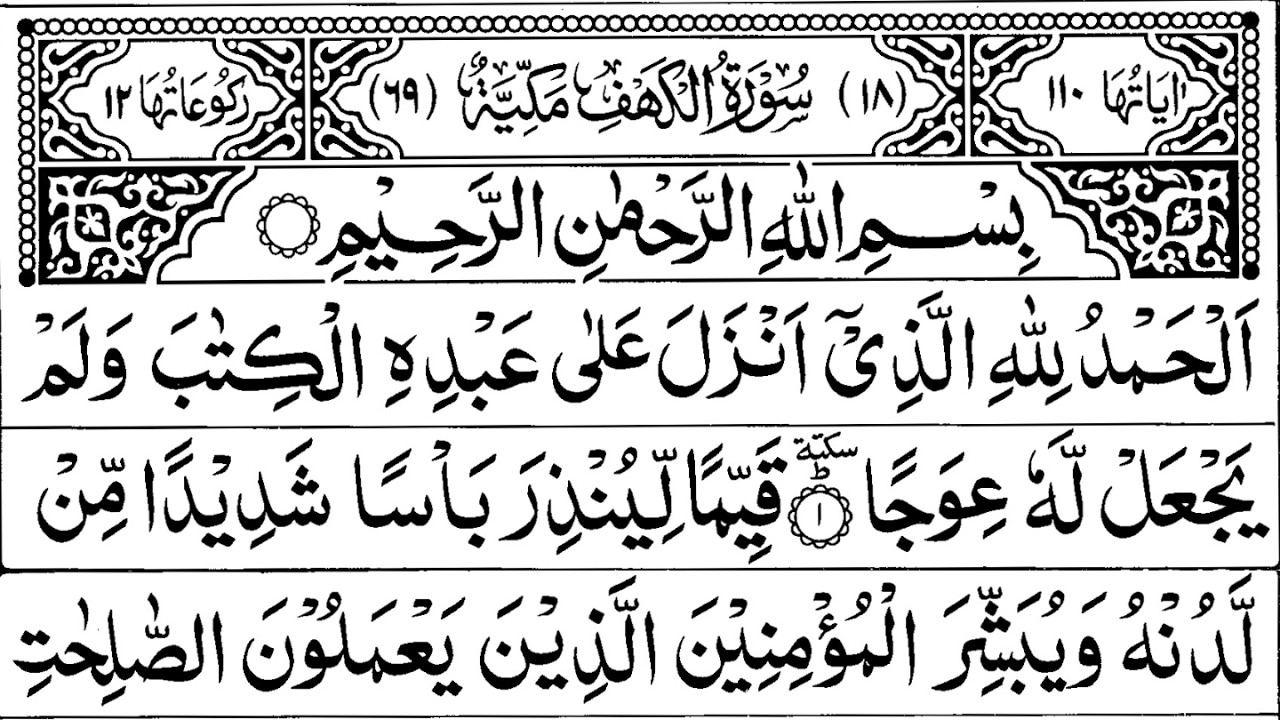 اٰيَاتُهَا ١١٠ (١٨) سُوْرَةُ الْكَهْفِ مَكِّيَّةٌ (٦٩) رَكُوْعَاتُهَا ١٢
بِسْمِ اللّٰهِ الرَّحْمٰنِ الرَّحِيْمِ
اَلْحَمْدُ لِلّٰهِ الَّذِيْۤ اَنْزَلَ عَلٰى عَبْدِهِ الْكِتٰبَ وَلَمْ
يَجْعَلْ لَّهٗ عِوَجًا ١ ؕ سكتة قَيِّمًا لِّيُنْذِرَ بَاْسًا شَدِيْدًا مِّنْ
لَّدُنْهُ وَيُبَشِّرَ الْمُؤْمِنِيْنَ الَّذِيْنَ يَعْمَلُوْنَ الصّٰلِحٰتِ